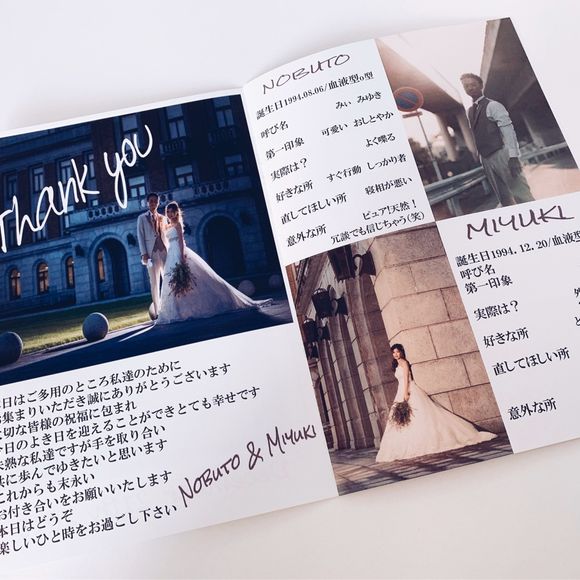 Thank you
本日はご多用のところ私達のために
お集まりいただき誠にありがとうございます
大切な皆様の祝福に包まれ
今日のよき日を迎えることができとても幸せです
未熟な私達ですが手を取り合い
共に歩んでゆきたいと思います
これからも末永い
お付き合いをお願いいたします
本日はどうぞ
楽しいひと時をお過ごし下さい
NOBUTO & MIYUKI
NOBUTO
誕生日1994.08.06/血液型o型
呼び名 みぃ みゆき
第一印象 可愛い おしとやか
実際は? よく喋る
好きな所 すぐ行動 しっかり者
直してほしい所 寝相が悪い
意外な所 ピュア!天然!
冗談でも信じちゃう(笑)
MIYUKI
誕生日1994.12.20/血液型
呼び名
第一印象
実際は?
好きな所
直してほしい所
意外な所